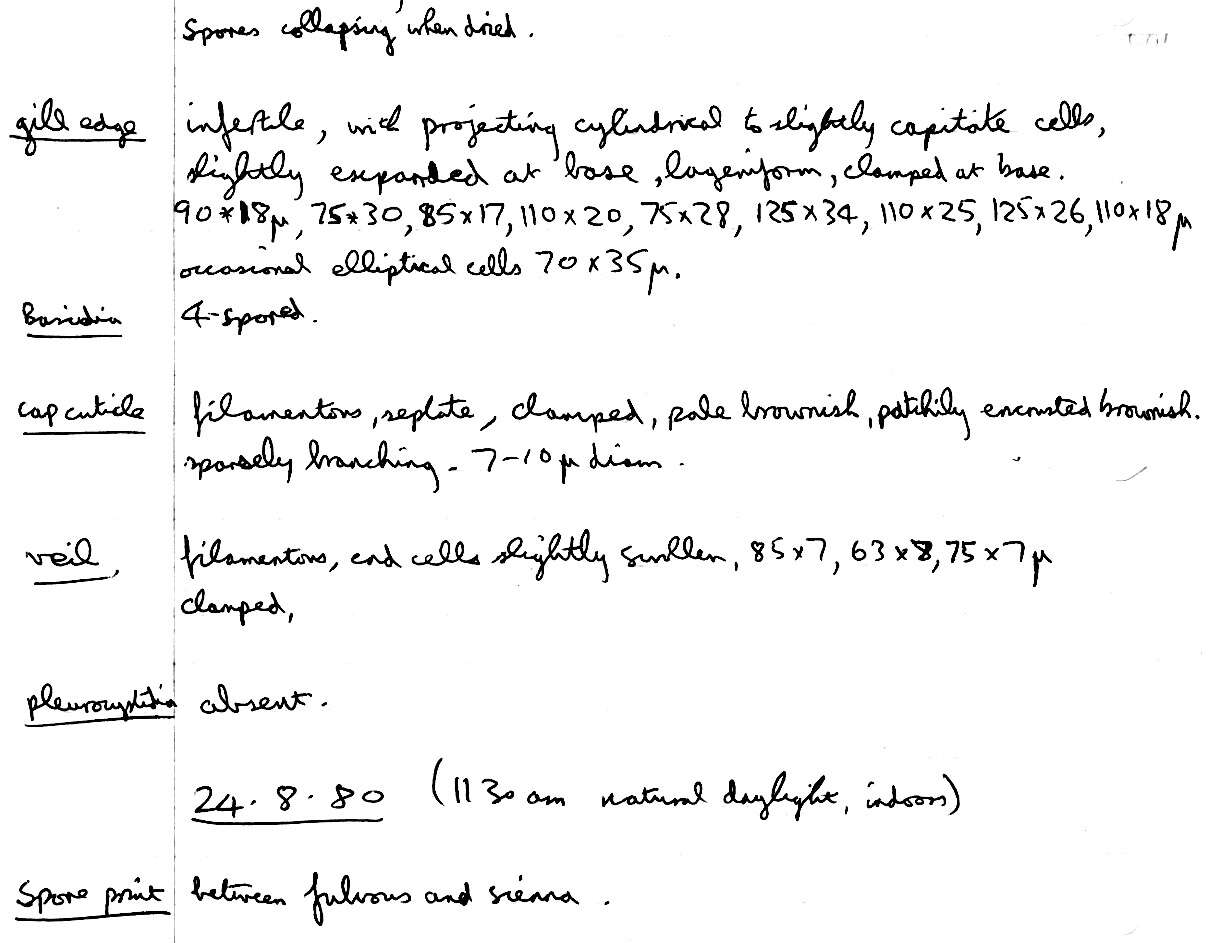 Spores collapsing when dried.
gill edge infertile, with projecting cylindrical to slightly capitate cells,
slightly expanded at base, lageniform, clamped at base.
90×18µ, 75×30, 85×17, 110×20, 75×28, 125×34, 110×25, 125×26, 110×18µ
occasional elliptical cells 70×35µ.
Basidia 4-spored.
cap cuticle filamentous, septate, clamped, pale brownish, patchily encrusted brownish.
sparsely branching - 7-10µ diam.
veil, filamentous, end cells slightly swollen, 85×7, 63×8, 75×7µ
clamped,
pleurocystidia absent.
24.8.80 (1130 am natural daylight, indoors)
Spore print between fulvous and sienna.